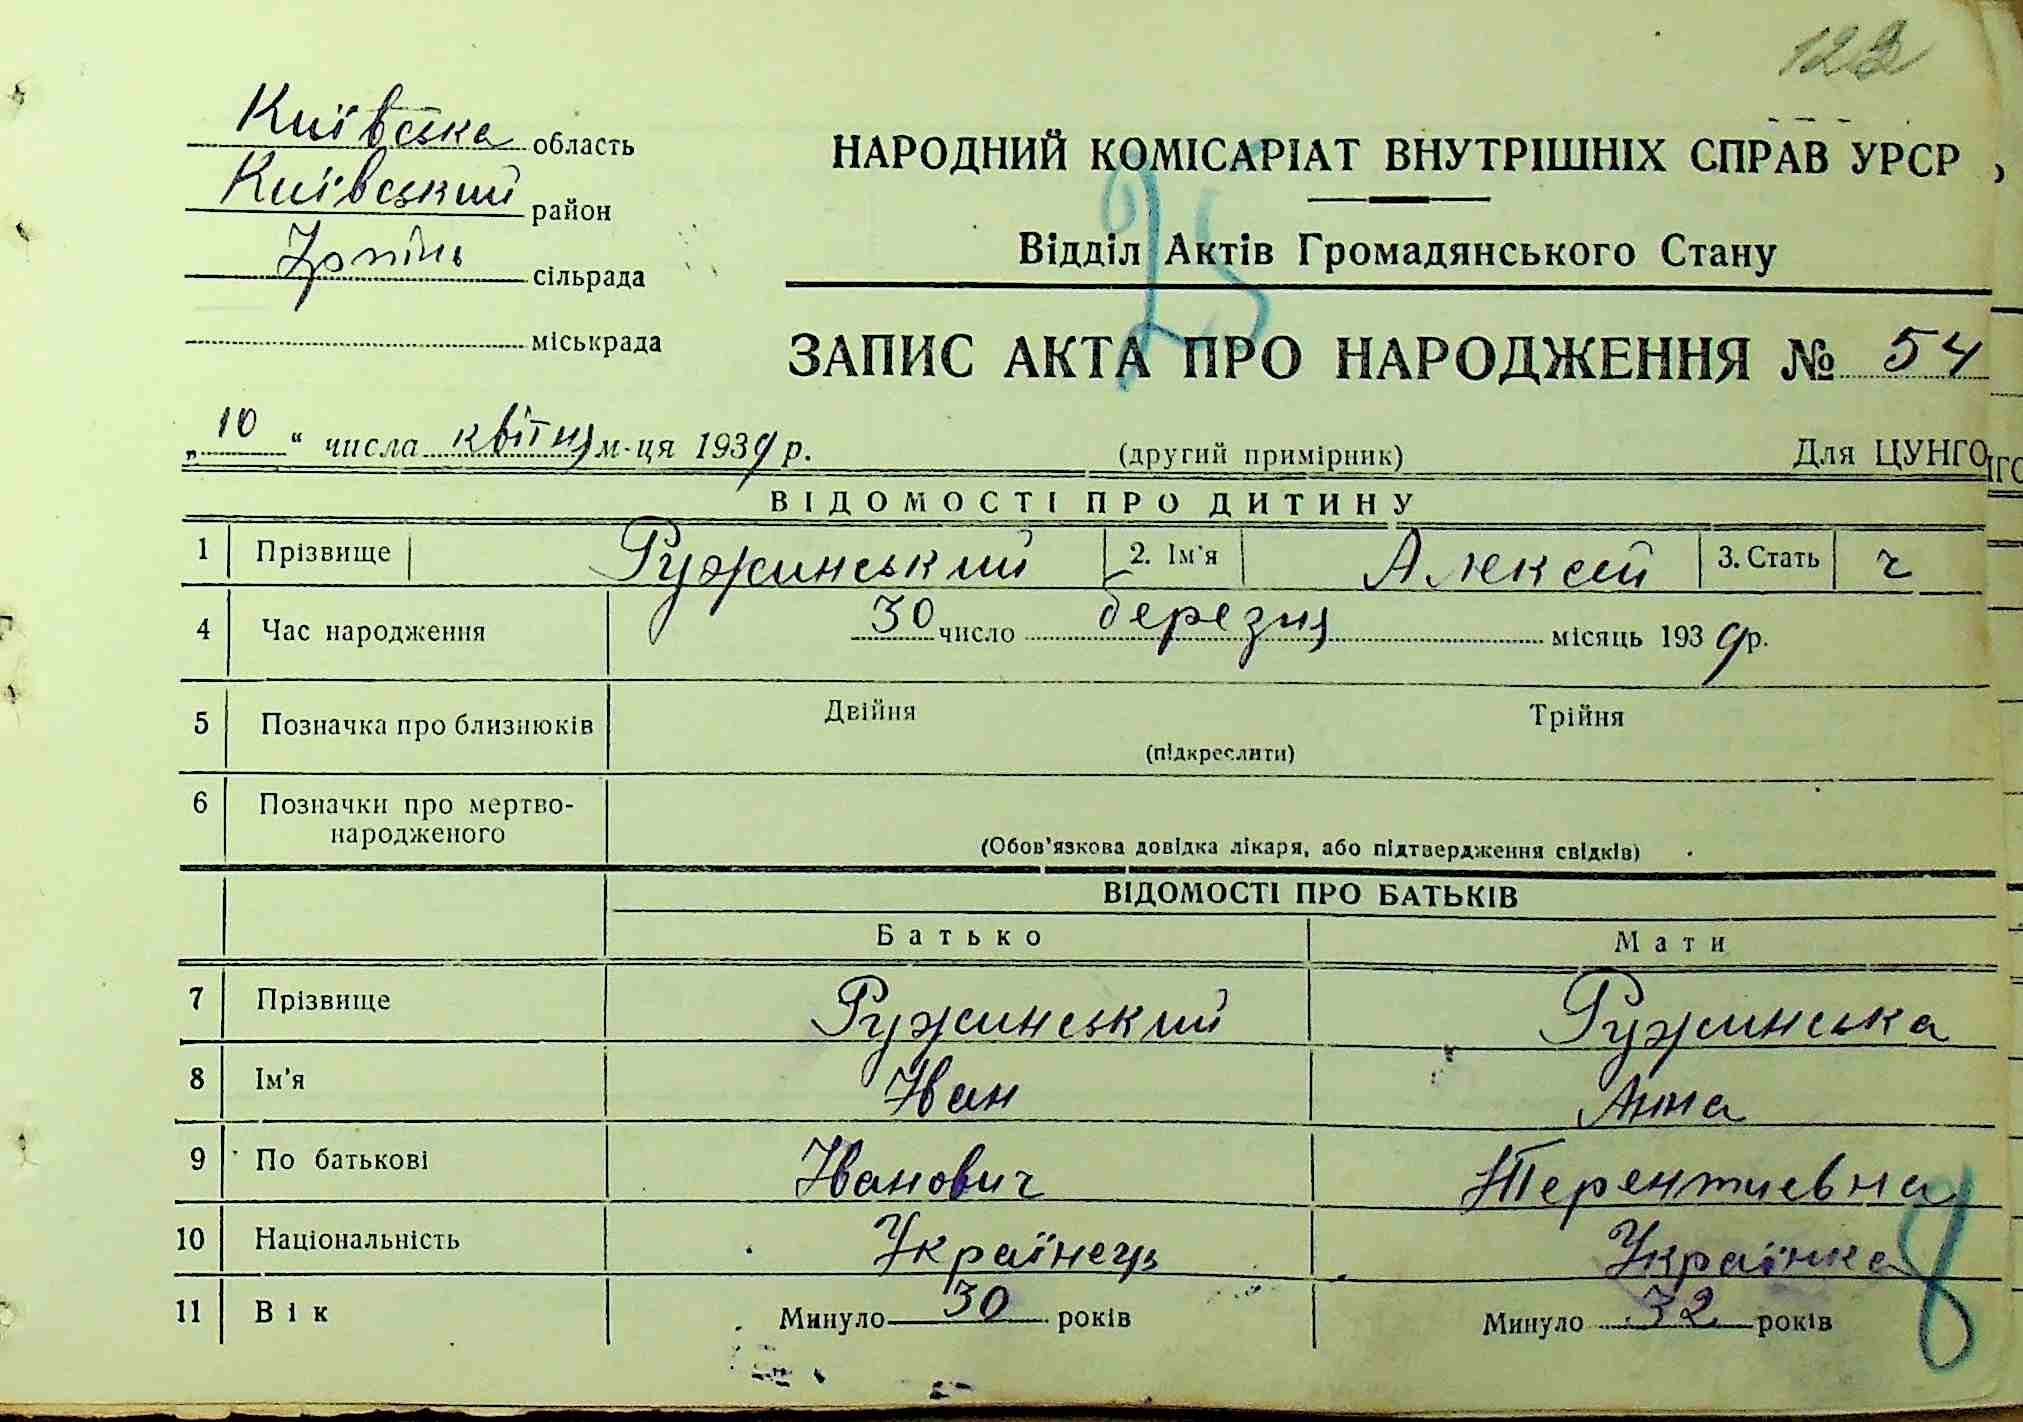 122
Київська область
Київський район
Ірпінь сільрада
міськрада
НАРОДНИЙ КОМІСАРІАТ ВНУТРІШНІХ СПРАВ УРСР
Відділ Актів Громадянського Стану
25
ЗАПИС АКТА ПРО НАРОДЖЕННЯ № 54
„10“ числа квітня м-ця 1939 р. (другий примірник) Для ЦУНГО
ВІДОМОСТІ ПРО ДИТИНУ
1 Прізвище Ружинський 2. Ім'я Алексей 3. Стать ч
4 Час народження 30 число березня місяць 1939 р.
5 Позначка про близнюків Двійня Трійня
(підкреслити)
6 Позначки про мертво-
народженого
(Обов'язкова довідка лікаря, або підтвердження свідків)
ВІДОМОСТІ ПРО БАТЬКІВ
Батько Мати
7 Прізвище Ружинський Ружинська
8 Ім'я Иван Анна
9 По батькові Иванович Терентиевна
10 Національність Українець Українка
8
11 Вік Минуло 30 років Минуло 32 років